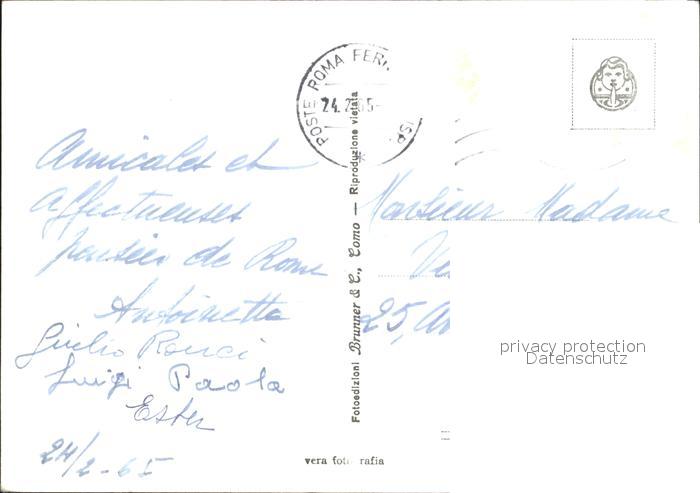 POSTE ROMA FERR
24.2 65-
Amicales et
affectueuses
pensées de Rome
Antoinetta
Giulio Ronci
Luigi Paola
Ester
24/2-65
Fotoedizioni Brunner & C., Como — Riproduzione vietata
vera fotografia
Monsieur Madame
25, Av
privacy protection
Datenschutz